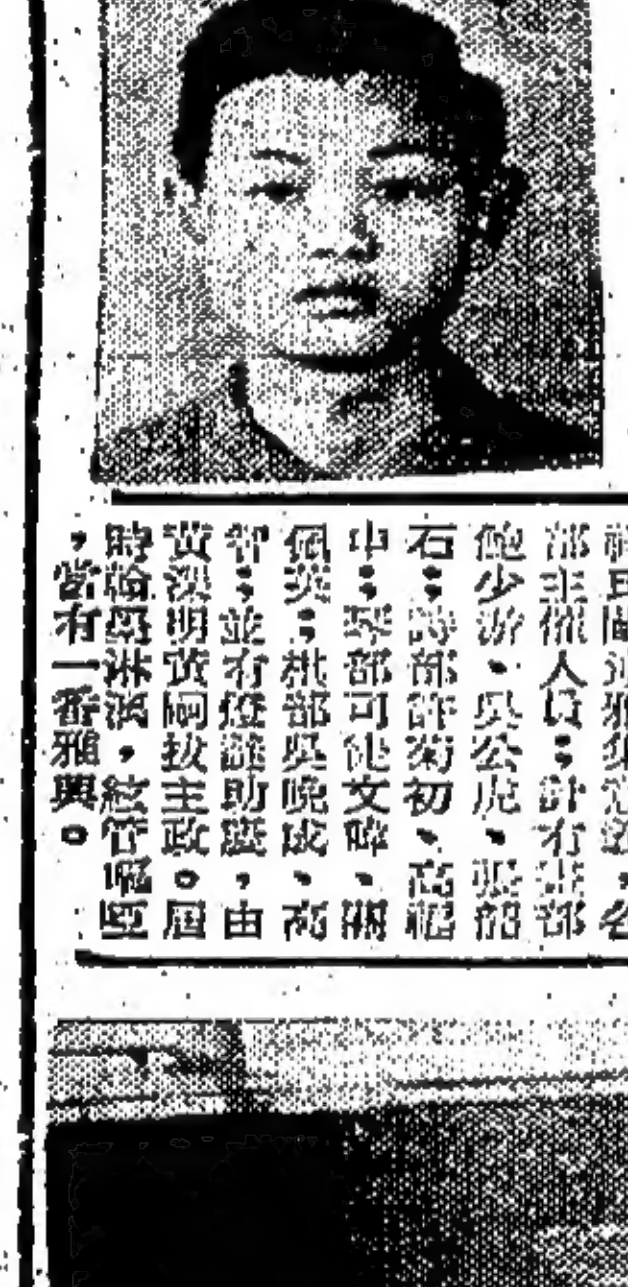 雅集，各
部主催人員：計有部
鮑少游、吳公虎、張韶
石；詩部許菊初、高
中；琴部司徒文、關
佩英；棋部吳晚成、高
智；並有燈謎助慶，由
黃漢明黃嗣拔主政。屆
時翰墨淋漓，絃管嘔啞
，當有一番雅興。